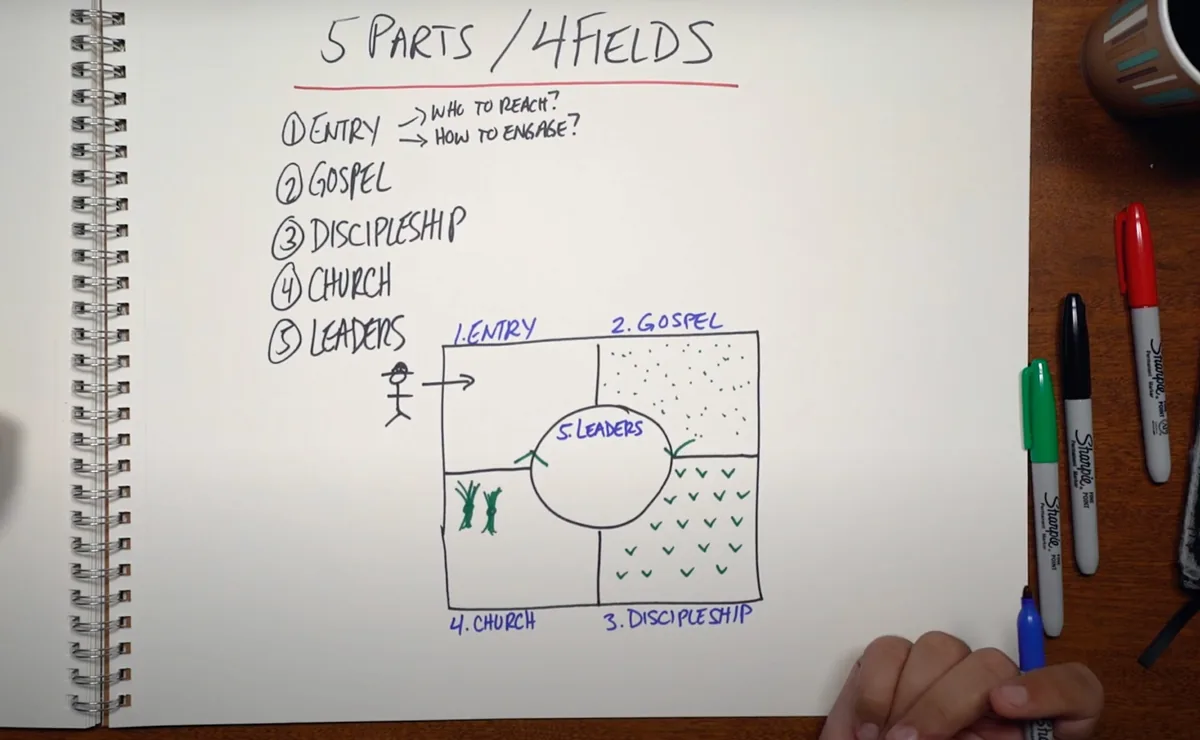 5 PARTS / 4 FIELDS
① ENTRY → WHO TO REACH?
→ HOW TO ENGAGE?
② GOSPEL
③ DISCIPLESHIP
④ CHURCH
⑤ LEADERS
1. ENTRY
2. GOSPEL
5. LEADERS
4. CHURCH
3. DISCIPLESHIP
Sharpie
Sharpie
Sharpie